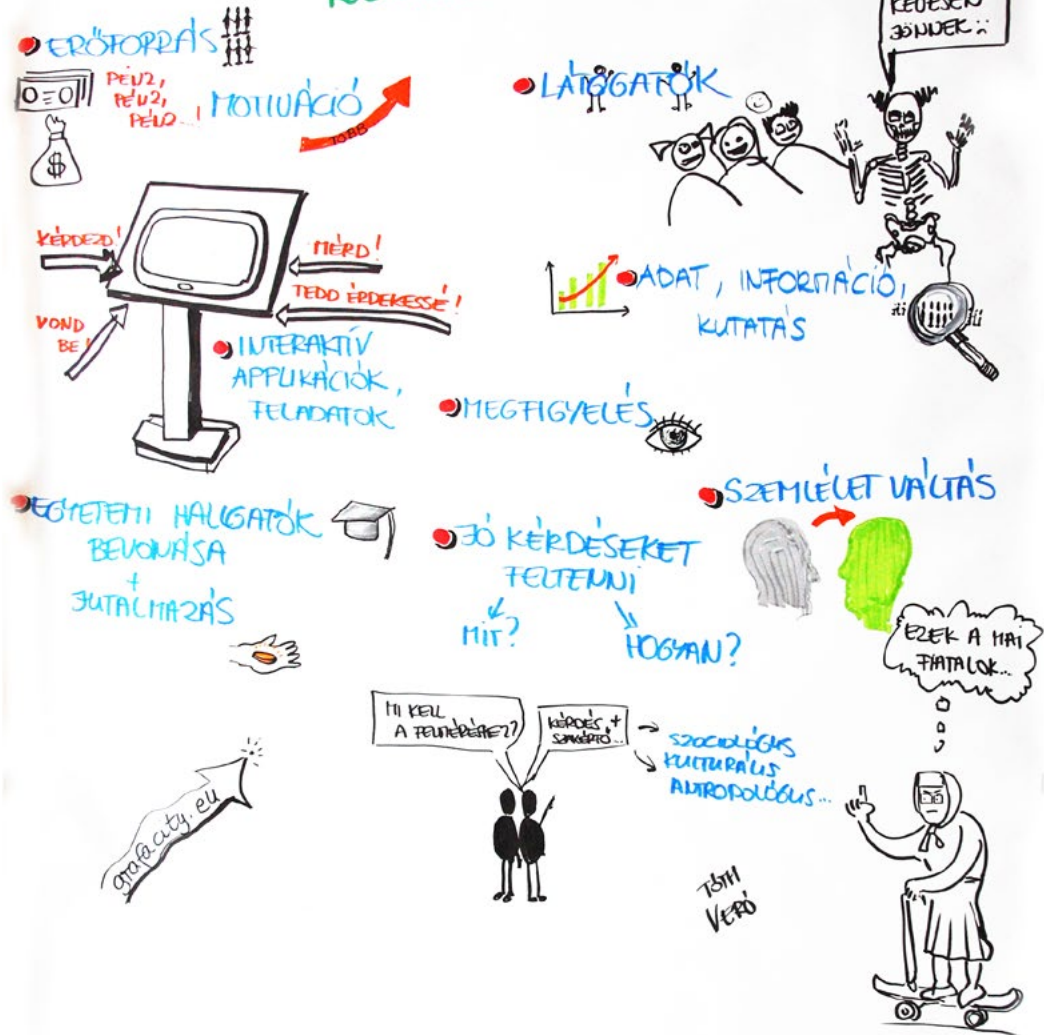 KEDESEN
JÖNNEK
ERŐFORRÁS
PÉNZ,
PÉNZ,
PÉNZ...!
MOTIVÁCIÓ
TÖBB
$
LÁTOGATÓK
KÉRDEZD!
MÉRD!
TEDD ÉRDEKESSÉ!
VOND
BE!
INTERAKTÍV
APPLIKÁCIÓK,
FELADATOK
ADAT, INFORMÁCIÓ,
KUTATÁS
MEGFIGYELÉS
EGYETEMI HALLGATÓK
BEVONÁSA
+
JUTALMAZÁS
JÓ KÉRDÉSEKET
FELTENNI
MIT?
HOGYAN?
SZEMLÉLET VÁLTÁS
EZEK A MAI
FIATALOK...
MI KELL
A FELMÉRÉSHEZ?
KÉRDÉS +
SZAKÉRTŐ...
SZOCIOLÓGUS
KULTURÁLIS
ANTROPOLÓGUS...
grafacity.eu
TÓTH
VERÓ